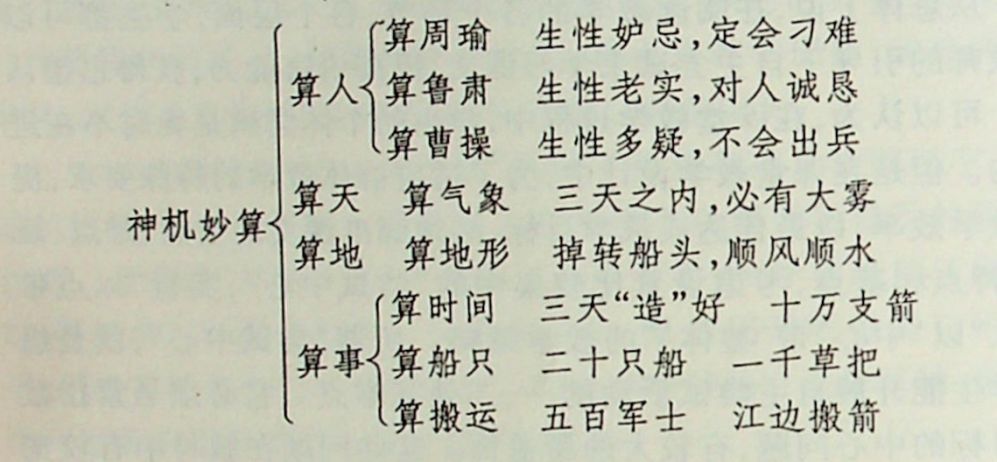 算周瑜 生性妒忌,定会刁难
算人 算鲁肃 生性老实,对人诚恳
算曹操 生性多疑,不会出兵
算天 算气象 三天之内,必有大雾
神机妙算
算地 算地形 掉转船头,顺风顺水
算时间 三天“造”好 十万支箭
算事 算船只 二十只船 一千草把
算搬运 五百军士 江边搬箭